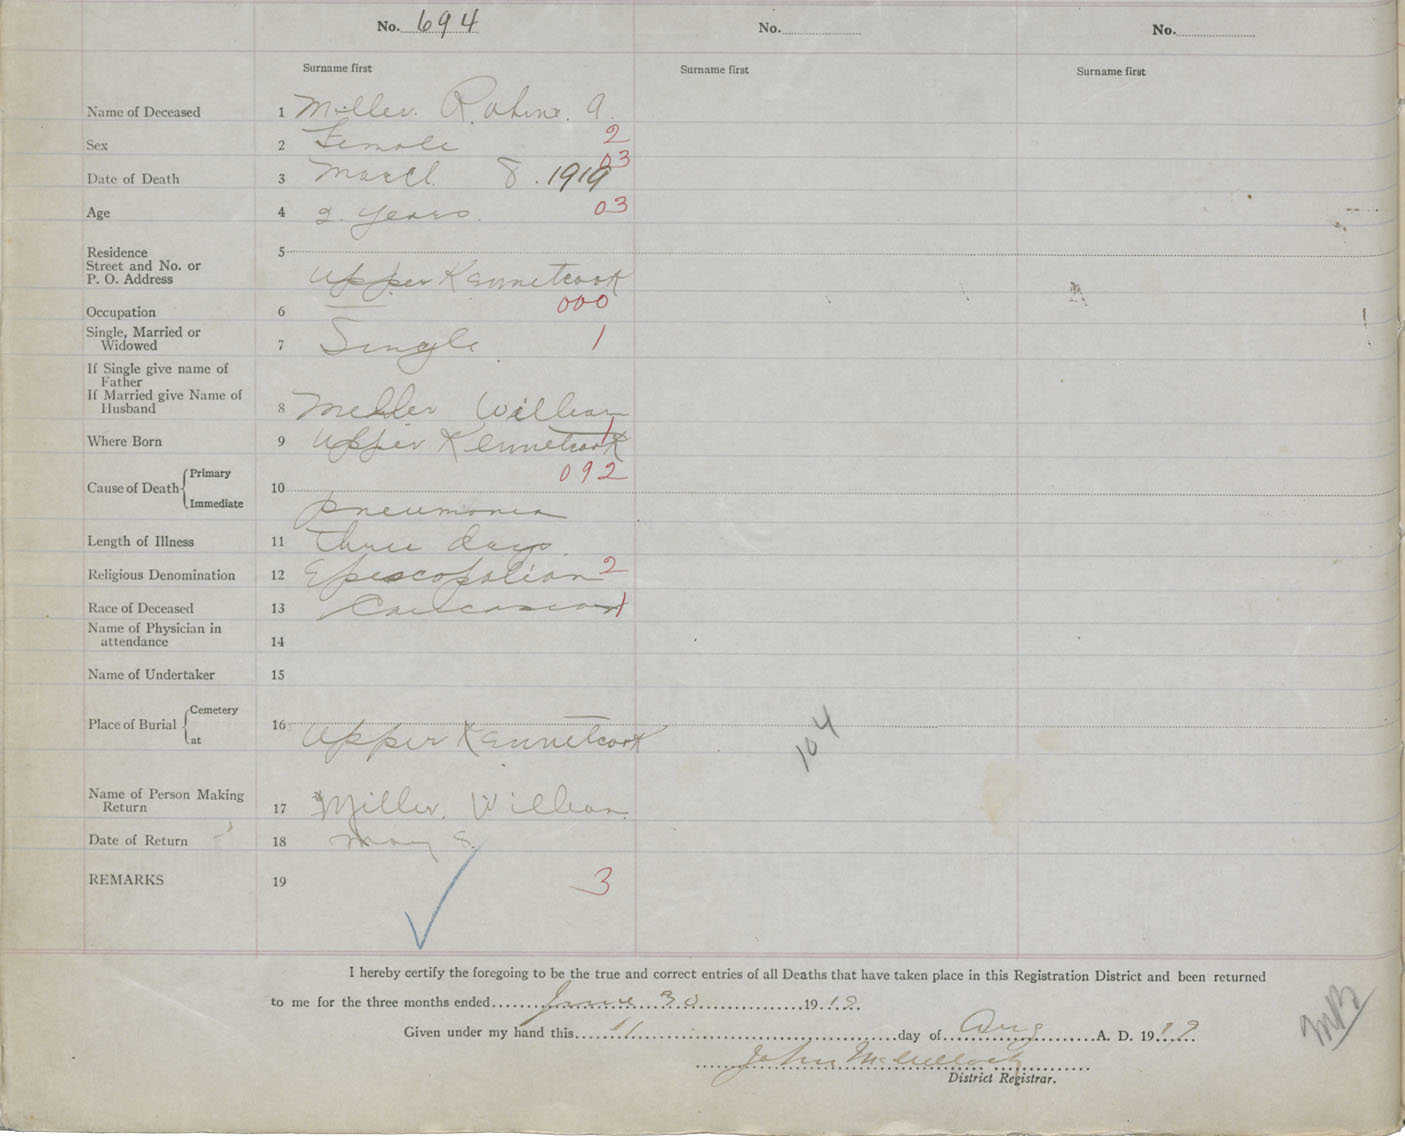 No. 694 No. No.
Surname first Surname first Surname first
Name of Deceased 1 Miller. A.
Sex 2 Female 2
Date of Death 3 March 8. 1919 03
Age 4 2. years. 03
Residence 5
Street and No. or
P. O. Address Upper Kennetcook
Occupation 6 — 000
Single, Married or
Widowed 7 Single 1
If Single give name of
Father
If Married give Name of
Husband 8 Miller William
Where Born 9 Upper Kennetcook 1
Cause of Death { Primary 092
10
Immediate pneumonia
Length of Illness 11 three days.
Religious Denomination 12 Episcopalian 2
Race of Deceased 13 Caucasian 1
Name of Physician in
attendance 14
Name of Undertaker 15
Place of Burial { Cemetery
16
at Upper Kennetcook
104
Name of Person Making
Return 17 Miller. William.
Date of Return 18 May 8.
REMARKS 19 3
I hereby certify the foregoing to be the true and correct entries of all Deaths that have taken place in this Registration District and been returned
to me for the three months ended June 30 1919.
Given under my hand this 11 day of Aug A. D. 1919
John McCulloch
District Registrar.